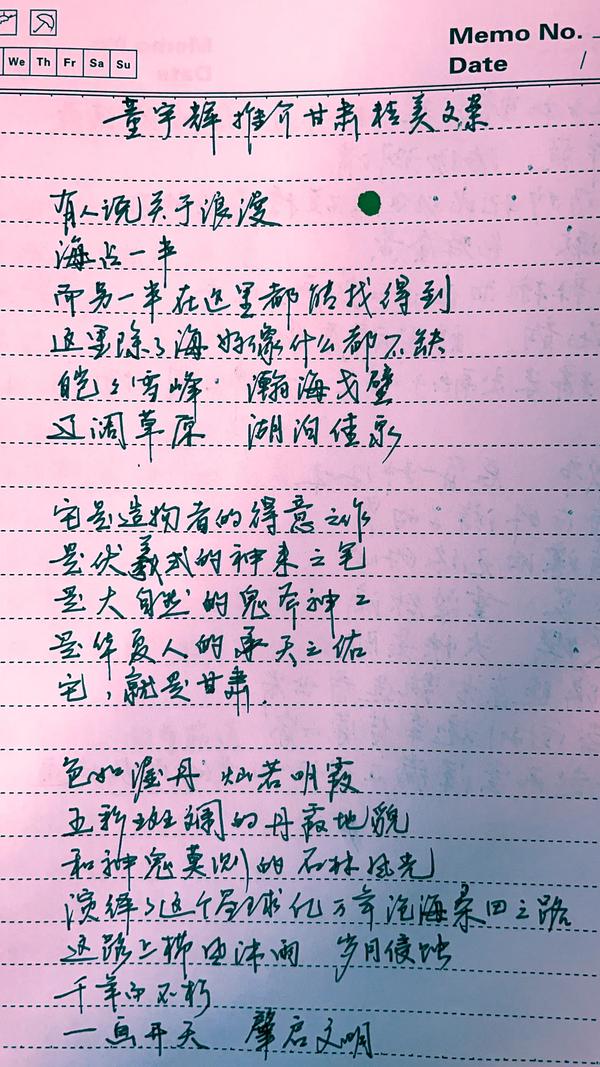 Memo No.
We Th Fr Sa Su
Date /
董宇辉推介甘肃精美文案
有人说关于浪漫
海占一半
而另一半在这里都能找得到
这里除了海好像什么都不缺
皑々雪峰 瀚海戈壁
辽阔草原 湖泊佳泉
它是造物者的得意之作
是伏羲式的神来之笔
是大自然的鬼斧神工
是华夏人的承天之佑
它,就是甘肃.
色如渥丹 灿若明霞
五彩斑斓的丹霞地貌
和神鬼莫测的石林风光
演绎了这个星球亿万年沧海桑田之路
这路上栉风沐雨 岁月侵蚀
千年而不朽
一画开天 肇启文明